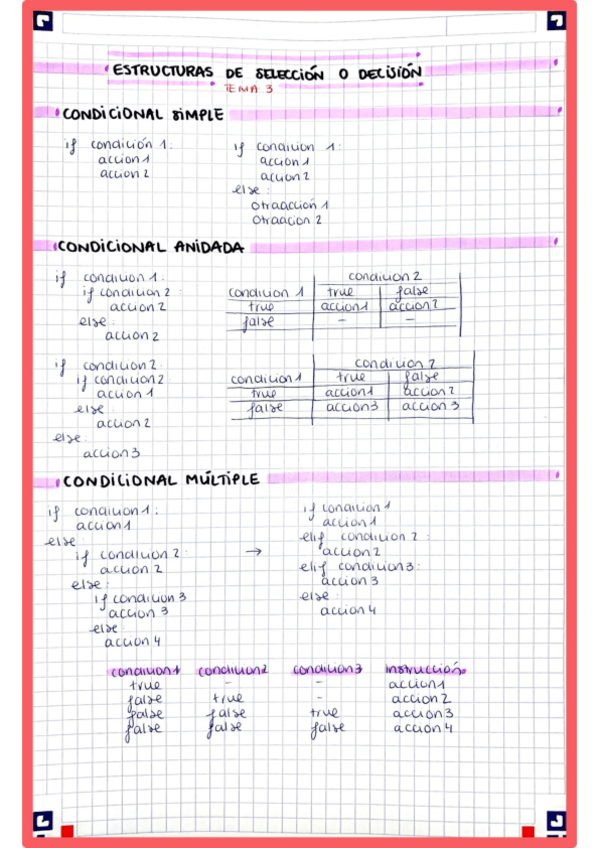 ESTRUCTURAS DE SELECCIÓN O DECISIÓN
TEMA 3
CONDICIONAL SIMPLE
if condición 1:
accion 1
accion 2
if condicion 1:
accion 1
accion 2
else:
otraacción 1
otraacion 2
CONDICIONAL ANIDADA
if condicion 1:
if condicion 2
accion 2
else:
accion 2
condicion 2
condicion 1 true false
true accion 1 accion 2
false – –
if condicion 2:
if condicion 2
accion 1
else:
accion 2
else:
accion 3
condicion 2
condicion 1 true false
true accion 1 accion 2
false accion 3 accion 3
CONDICIONAL MÚLTIPLE
if condicion 1:
accion 1
else:
if condicion 2:
accion 2
else:
if condicion 3
accion 3
else
accion 4
→
if condicion 1
accion 1
elif condicion 2:
accion 2
elif condicion 3:
accion 3
else:
accion 4
condicion 1 condicion 2 condicion 3 instrucción
true – – accion 1
false true – accion 2
false false true accion 3
false false false accion 4